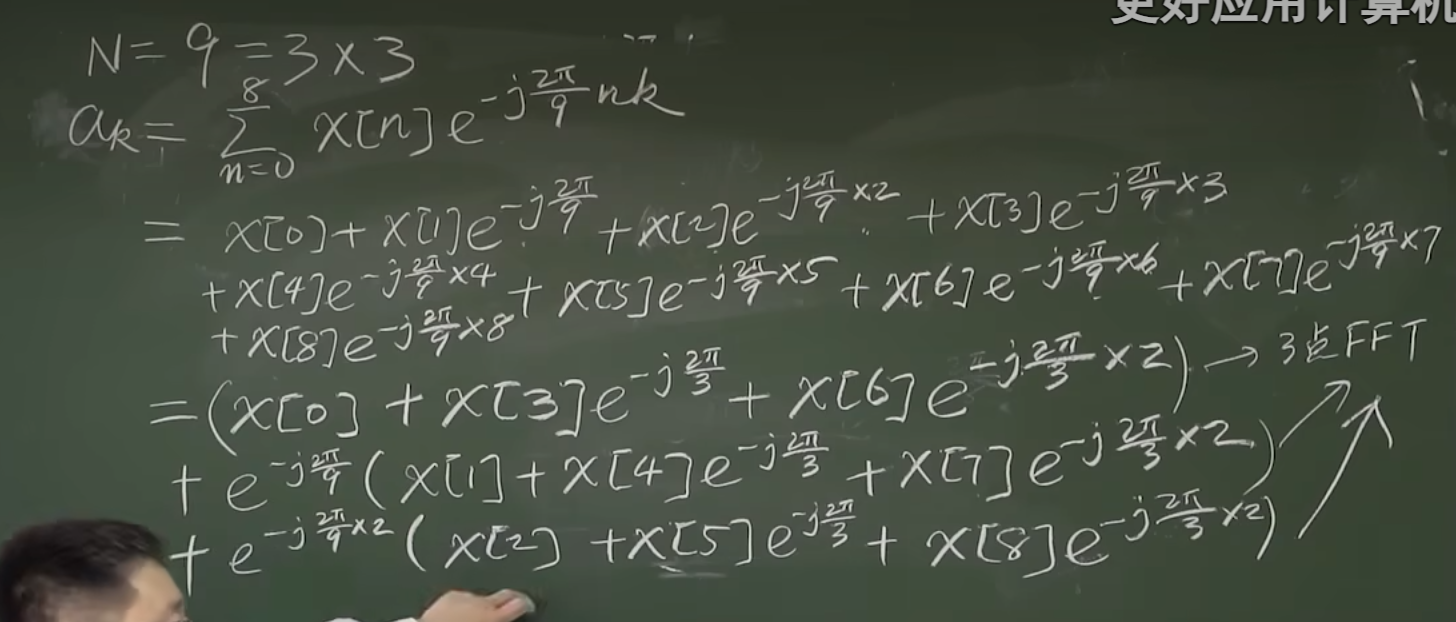 更好应用计算机
N = 9 = 3 × 3
a_k = \sum_{n=0}^{8} x[n] e^{-j\frac{2π}{9}nk}
= x[0] + x[1]e^{-j\frac{2π}{9}} + x[2]e^{-j\frac{2π}{9}×2} + x[3]e^{-j\frac{2π}{9}×3}
+ x[4]e^{-j\frac{2π}{9}×4} + x[5]e^{-j\frac{2π}{9}×5} + x[6]e^{-j\frac{2π}{9}×6} + x[7]e^{-j\frac{2π}{9}×7}
+ x[8]e^{-j\frac{2π}{9}×8}
= (x[0] + x[3]e^{-j\frac{2π}{3}} + x[6]e^{-j\frac{2π}{3}×2}) → 3点FFT
+ e^{-j\frac{2π}{9}} (x[1] + x[4]e^{-j\frac{2π}{3}} + x[7]e^{-j\frac{2π}{3}×2})
+ e^{-j\frac{2π}{9}×2} (x[2] + x[5]e^{-j\frac{2π}{3}} + x[8]e^{-j\frac{2π}{3}×2})